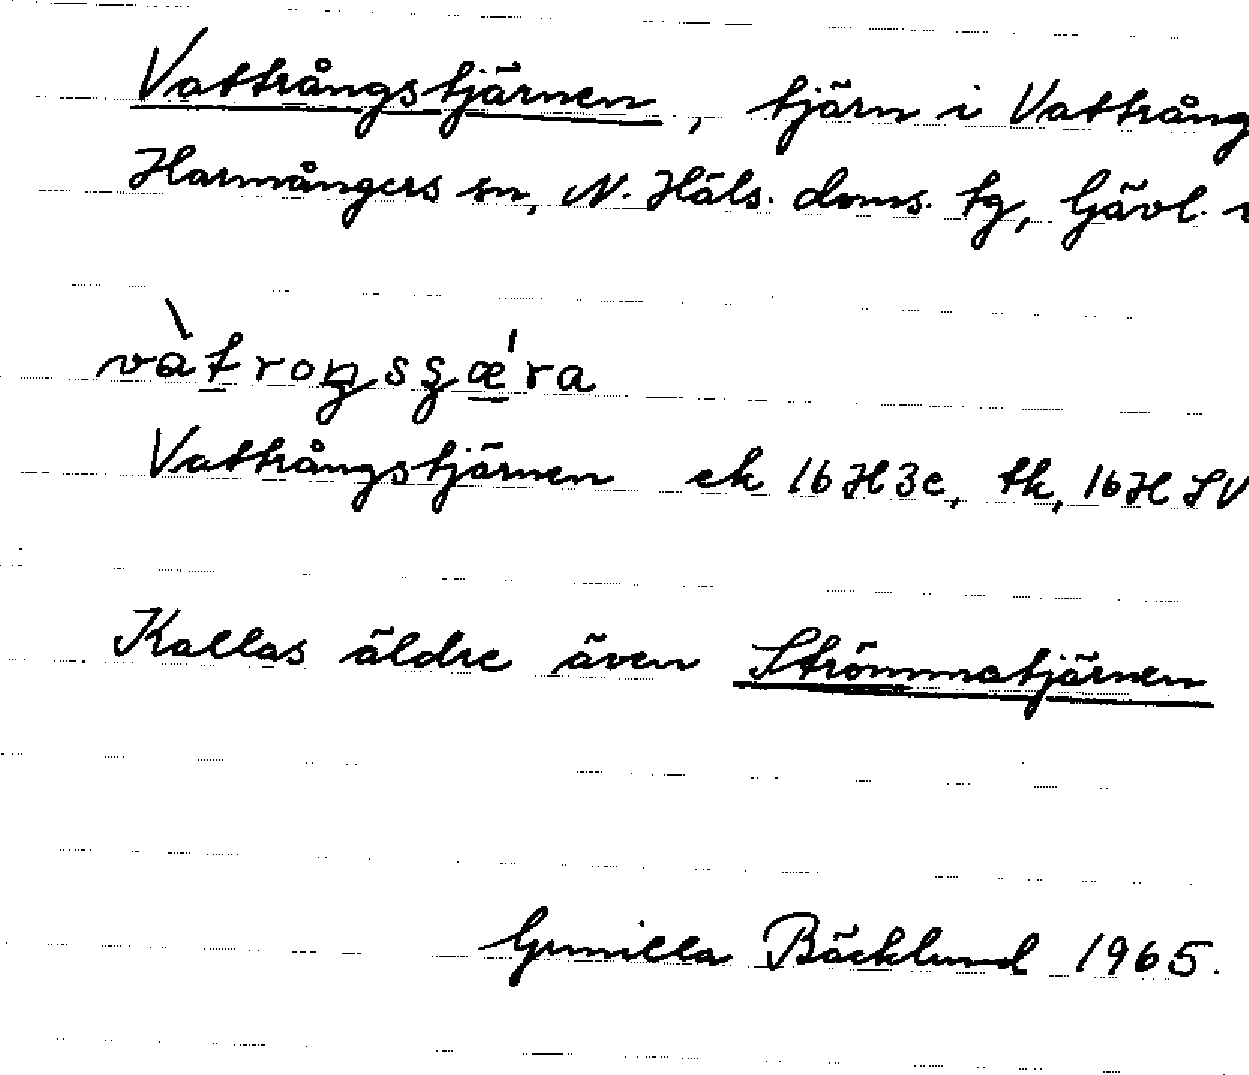 Vattrångstjärnen, tjärn i Vattrång
Harmångers sn, N. Häls. doms. tg, Gävl.
Vattrångstjärnen ek 16H3c, tk, 16H SV
Kallas äldre även Strömmatjärnen
Gunilla Bäcklund 1965.